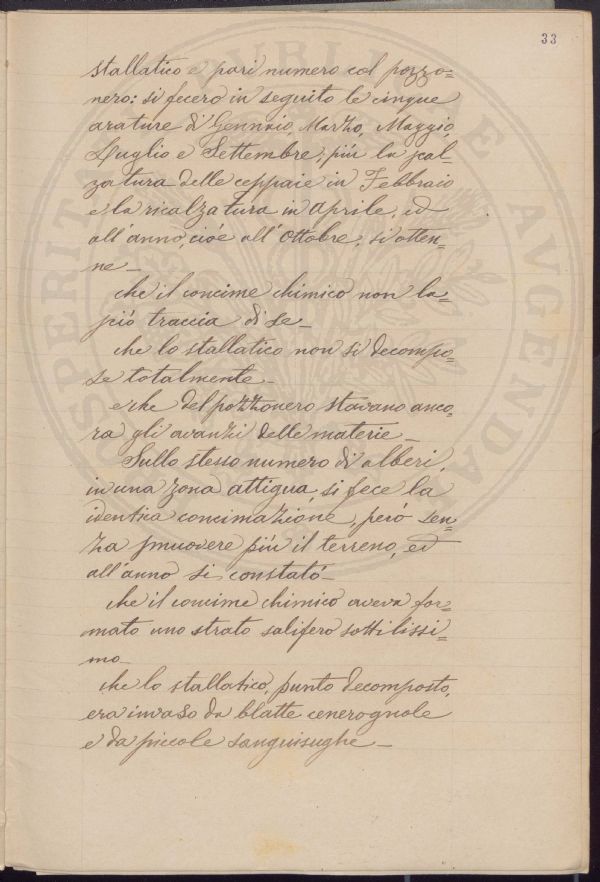 33
stallatico e pari numero col pozzo=
nero: si fecero in seguito le cinque
arature di Gennaio, Marzo, Maggio,
Luglio e Settembre, più la scal=
zatura delle ceppaie in Febbraio
e la ricalzatura in Aprile, ed
all'anno, cioé all'Ottobre, si otten=
ne_
che il concime chimico non la=
sciò traccia di se_
che lo stallatico non si decompo=
se totalmente_
e che del pozzonero stavano anco=
ra gli avanzi delle materie_
Sullo stesso numero di alberi,
in una zona attigua, si fece la
identica concimazione, però sen=
za smuovere più il terreno, ed
all'anno si constatò_
che il concime chimico aveva for=
mato uno strato salifero sottilissi=
mo_
che lo stallatico, punto decomposto,
era invaso da blatte cenerognole
e da piccole sanguisughe_